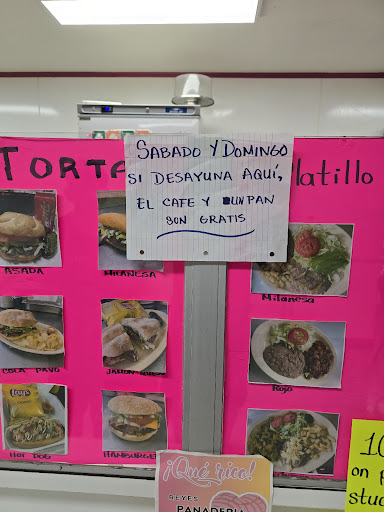 TORTA
SABADO Y DOMINGO
SI DESAYUNA AQUÍ,
EL CAFE Y UN PAN
SON GRATIS
Platillo
ASADA
MILANESA
Milanesa
COLA PAVO
JAMON QUESO
Rojo
Lay's
HOT DOG
HAMBURGE
¡Qué rico!
REYES
PANADERIA
10
on p
stud